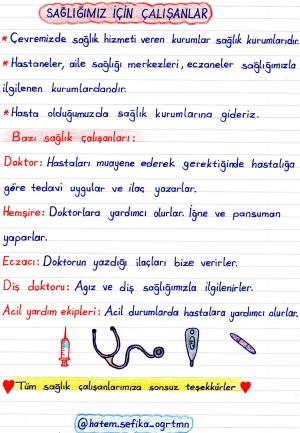 SAĞLIĞIMIZ İÇİN ÇALIŞANLAR
* Çevremizde sağlık hizmeti veren kurumlar sağlık kurumlarıdır.
* Hastaneler, aile sağlığı merkezleri, eczaneler sağlığımızla
ilgilenen kurumlardandır.
* Hasta olduğumuzda sağlık kurumlarına gideriz.
Bazı sağlık çalışanları:
Doktor: Hastaları muayene ederek gerektiğinde hastalığa
göre tedavi uygular ve ilaç yazarlar.
Hemşire: Doktorlara yardımcı olurlar. İğne ve pansuman
yaparlar.
Eczacı: Doktorun yazdığı ilaçları bize verirler.
Diş doktoru: Ağız ve diş sağlığımızla ilgilenirler.
Acil yardım ekipleri: Acil durumlarda hastalara yardımcı olurlar.
Tüm sağlık çalışanlarımıza sonsuz teşekkürler
@hatem.sefika_ogrtmn